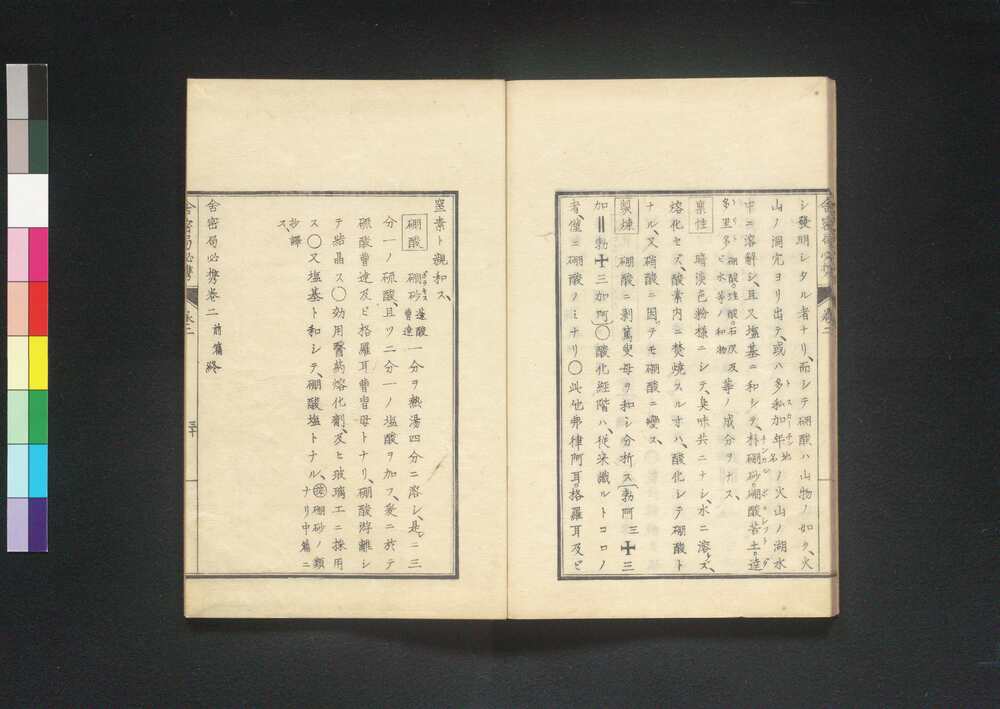 シ發明シタル者ナリ、而シテ硼酸ハ山物ノ如ク、火
山ノ洞穴ヨリ出テ、或ハ多私加年地名ノ火山ノ湖水
中ニ溶解シ、且又塩基ニ和シテ、朴硼砂。硼酸苦土。達
多里多硼酸。硅酸。石灰及ヒ水等ノ和物等ノ成分ヲナス、
稟性 暗淡色粉様ニシテ、臭味共ニナシ、水ニ溶ズ、
熔化セズ、酸素内ニ焚焼スルオハ、酸化シテ硼酸ト
ナル、又硝酸ニ因テモ硼酸ニ變ス、
製煉 硼酸ニ剥篤叟母ヲ和シ分析ス(勃阿三十三
加‖勃十三加阿)〇酸化経階ハ、従来識ルトコロノ
者、僅ニ硼酸ノミナリ〇此他弗律阿耳。格羅耳及ビ
窒素ト親和ス、
硼酸 硼砂蓬酸曹達一分ヲ熱湯四分ニ溶シ、是ニ三
分一ノ硫酸、且ツ二分一ノ塩酸ヲ加フ、爰ニ於テ
硫酸曹達及ビ格羅耳曹胄母トナリ、硼酸游離シ
テ結晶ス〇効用醫药熔化劑、及ヒ玻璃工ニ採用
ス〇又塩基ト和シテ、硼酸塩トナル、硼砂ノ類ナリ中篇ニ
抄譯ス、
舎密局必携巻二 前篇終
舎密局必携
巻二
三十
舎密局必携
巻二